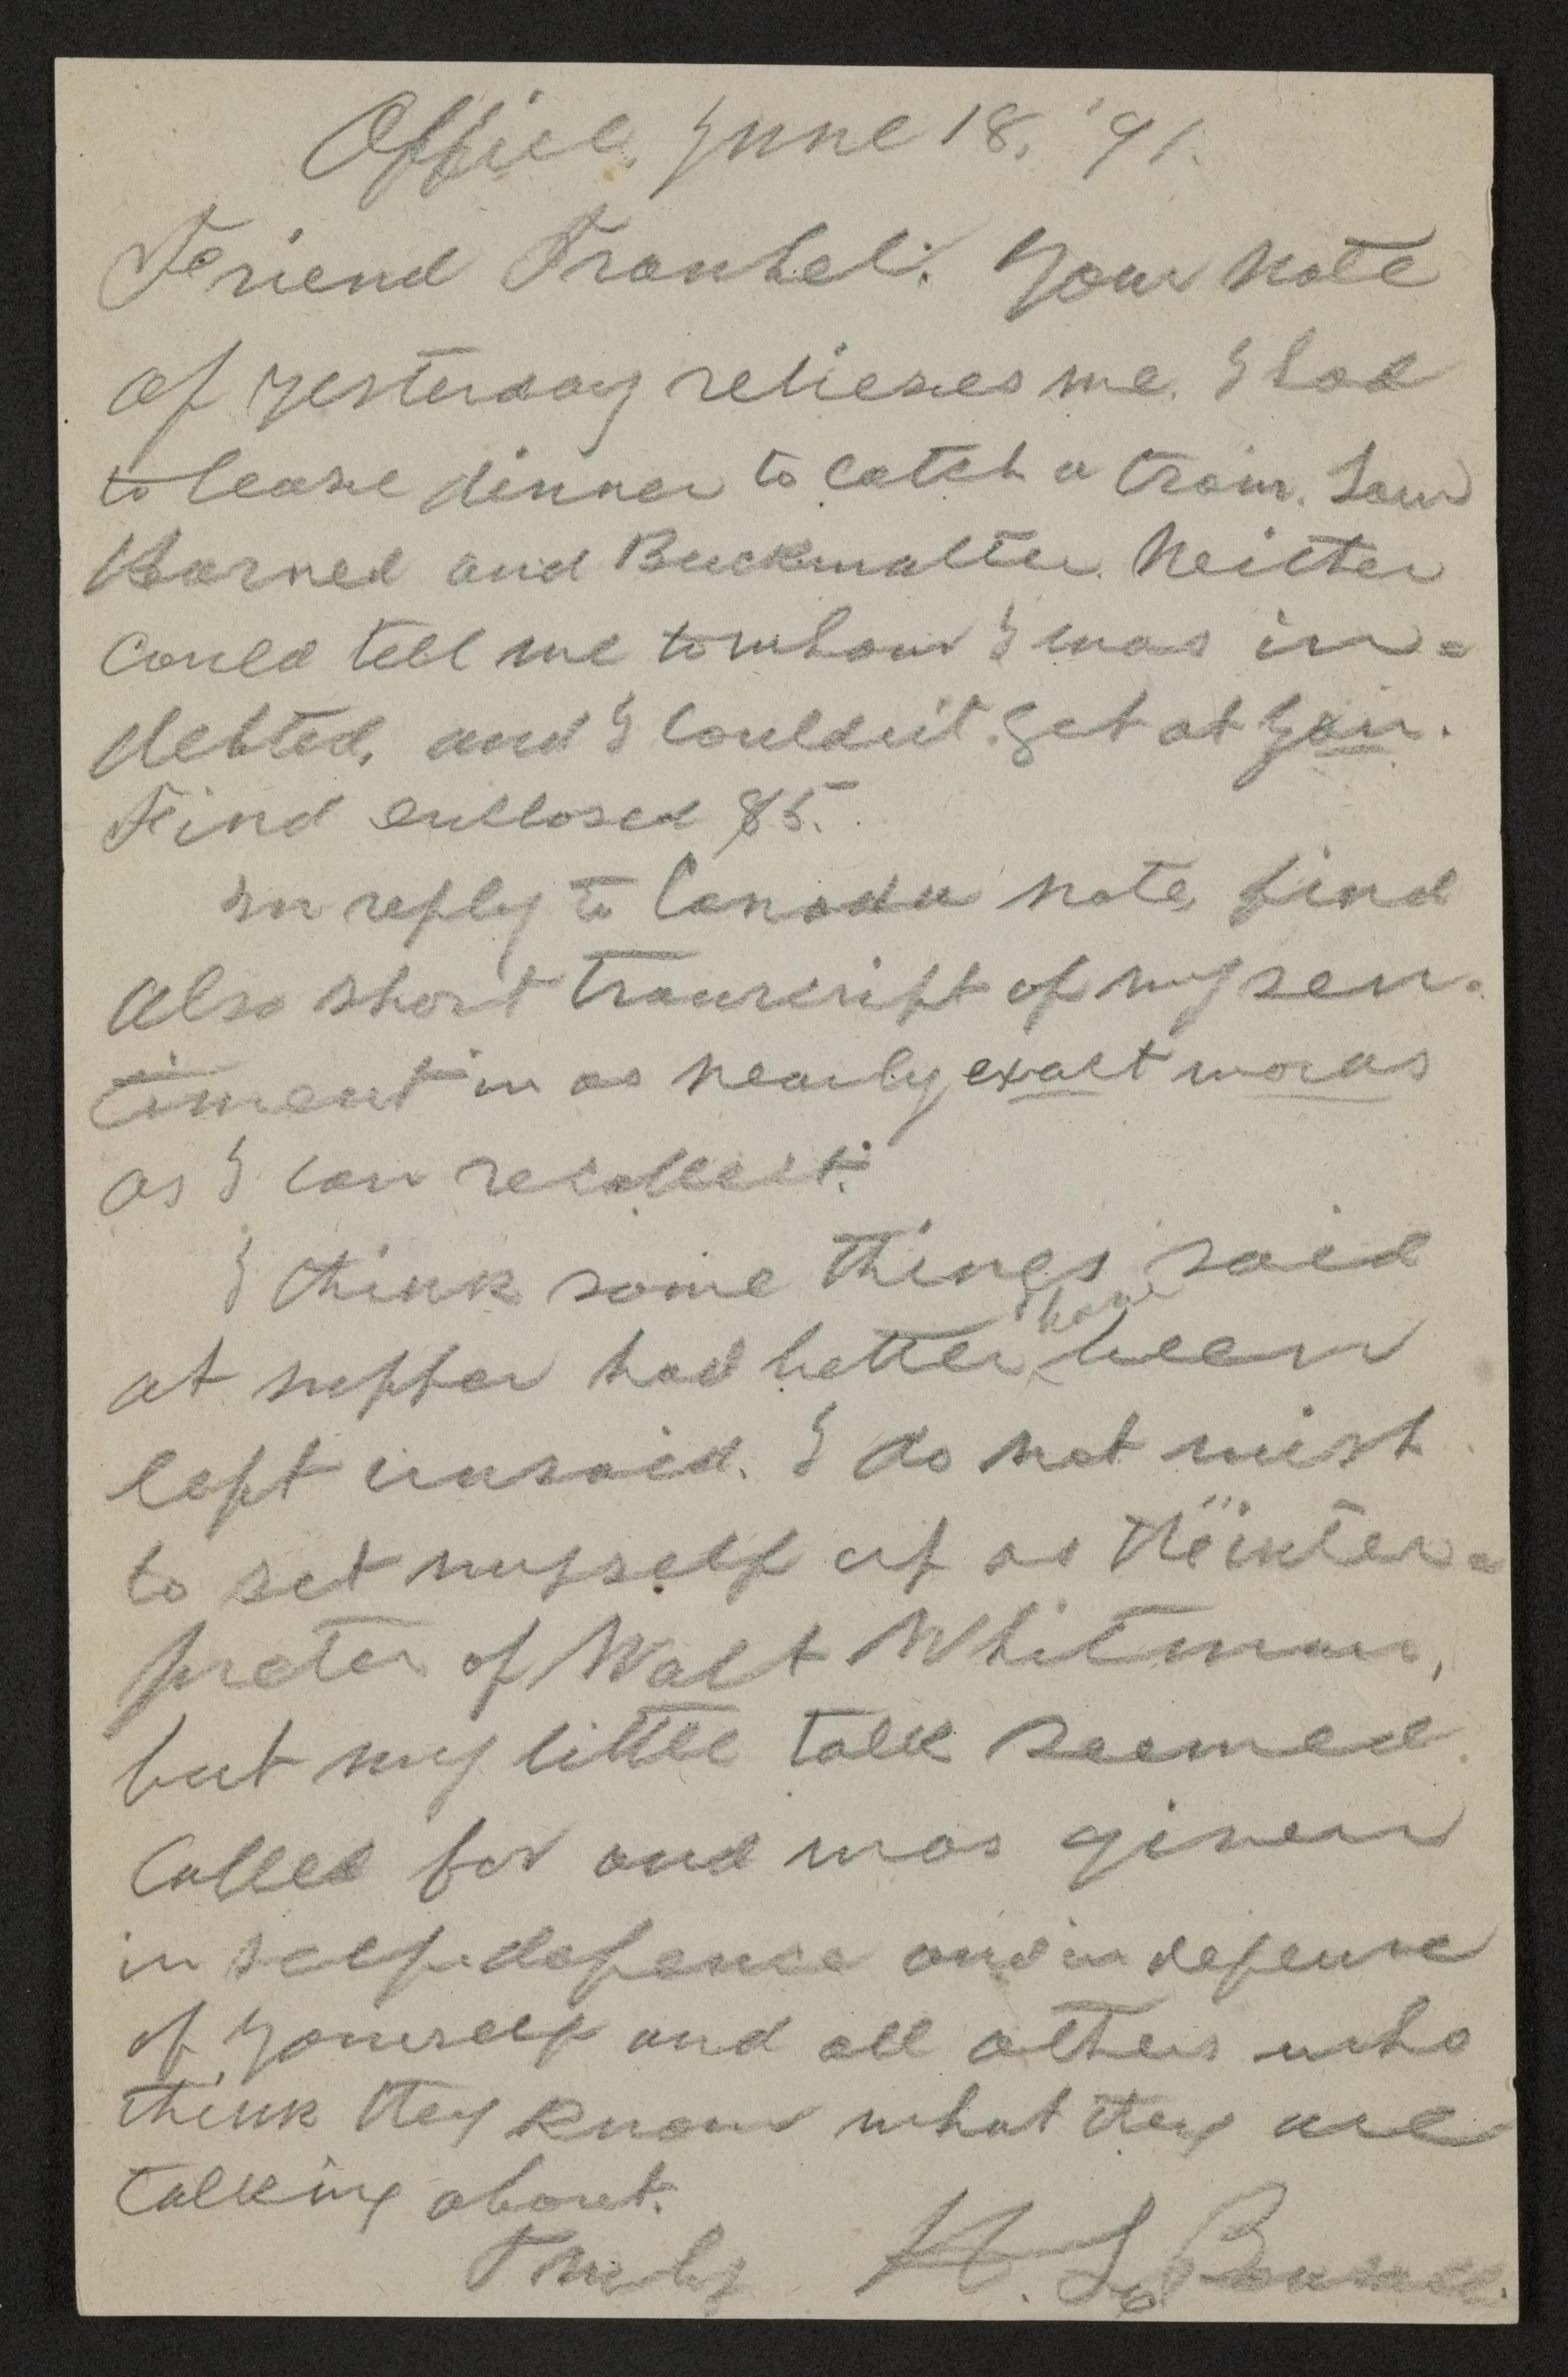 Office, June 18, '91.
Friend Traubel: Your note
of yesterday relieves me. I had
to leave dinner to catch a train. Saw
Harned and Buckwalter. Neither
could tell me to whom I was in=
debted, and I couldn't get at you.
Find enclosed $5.
In reply to Canada note, find
also short transcript of my sen-
timent in as nearly exact words
as I can recollect.
I think some things said
at supper had better have been
left unsaid. I do not wish
to set myself up as the inter=
preter of Walt Whitman,
but my little talk seemed
called for and was given
in self-defence and in defence
of yourself and all others who
think they know what they are
talking about.
Truly H. L. Bonsall.